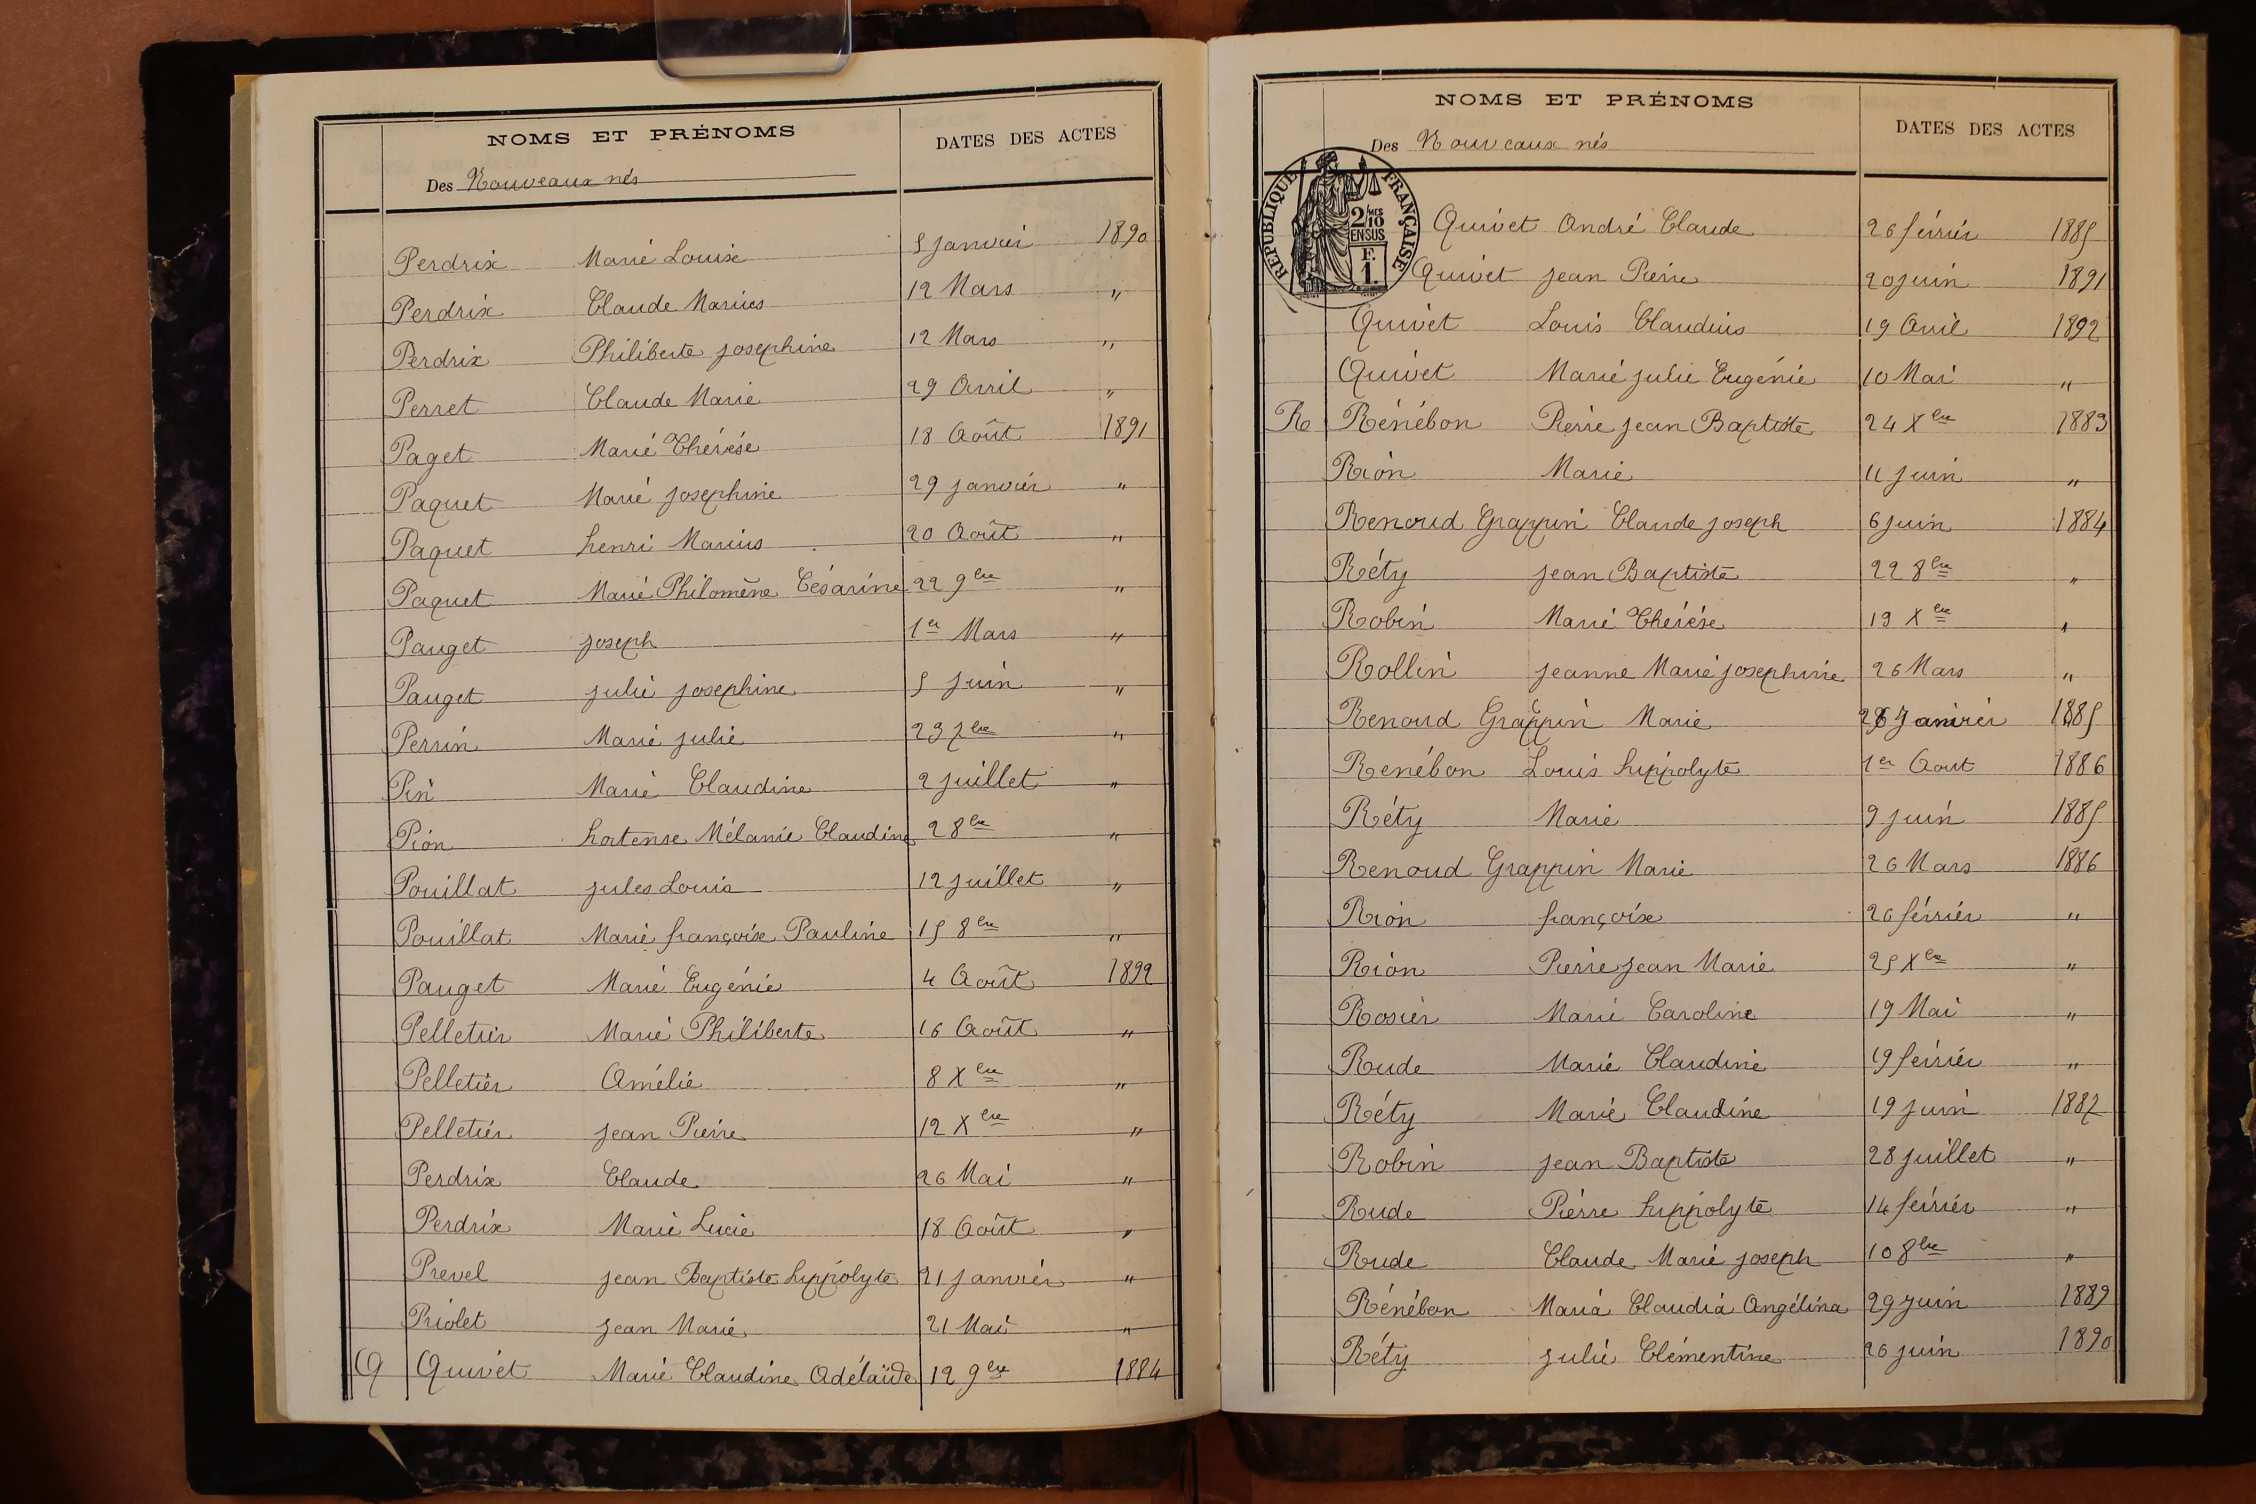 NOMS ET PRÉNOMS
DATES DES ACTES
Des Nouveaux nés
Perdrix Marie Louise 5 janvier 1890
Perdrix Claude Marius 12 Mars "
Perdrix Philiberte josephine 12 Mars "
Perret Claude Marie 29 Avril "
Paget Marie Thérèse 18 Août 1891
Paquet Marie josephine 29 janvier "
Paquet henri Marius 20 Août "
Paquet Marie Philomène Césarine 22 9bre "
Pauget joseph 1er Mars "
Pauget julie josephine 5 juin "
Perrin Marie julie 23 7bre "
Pin Marie Claudine 2 juillet "
Pion hortense Mélanie Claudine 2 8bre "
Pouillat jules Louis 12 juillet "
Pouillat Marie françoise Pauline 15 8bre "
Pauget Marie Eugénie 4 Août 1892
Pelletier Marie Philiberte 16 Août "
Pelletier Amélie 8 Xbre "
Pelletier jean Pierre 12 Xbre "
Perdrix Claude 26 Mai "
Perdrix Marie Lucie 18 Août "
Prevel jean Baptiste hyppolyte 21 janvier "
Priolet jean Marie 21 Mai "
Q Quivet Marie Claudine Adélaïde 12 9bre 1884
NOMS ET PRÉNOMS
DATES DES ACTES
Des Nouveaux nés
RÉPUBLIQUE FRANÇAISE
2/10 MES
EN SUS
F.
1.
Quivet André Claude 26 février 1885
Quivet jean Pierre 20 juin 1891
Quivet Louis Claudius 19 Avril 1892
Quivet Marie julie Eugénie 10 Mai "
R Rénébon Pierre jean Baptiste 24 Xbre 1883
Rion Marie 11 juin "
Renoud Grappin Claude joseph 6 juin 1884
Réty jean Baptiste 22 8bre "
Robin Marie Thérèse 19 Xbre "
Rollin jeanne Marie josephine 26 Mars "
Renoud Grappin Marie janvier 1885
Renébon Louis hippolyte 1er Aout 1886
Réty Marie 9 juin 1885
Renoud Grappin Marie 26 Mars 1886
Rion françoise 26 février "
Rion Pierre jean Marie 25 Xbre "
Rosier Marie Caroline 19 Mai "
Rude Marie Claudine 19 février "
Réty Marie Claudine 19 juin 1887
Robin jean Baptiste 28 juillet "
Rude Pierre hippolyte 14 février "
Rude Claude Marie joseph 10 8bre "
Rénébon Maria Claudia Angélina 29 juin 1889
Réty julie Clémentine 26 juin 1890